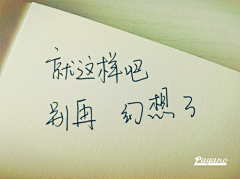 就这样吧
别再 幻想了
Payano